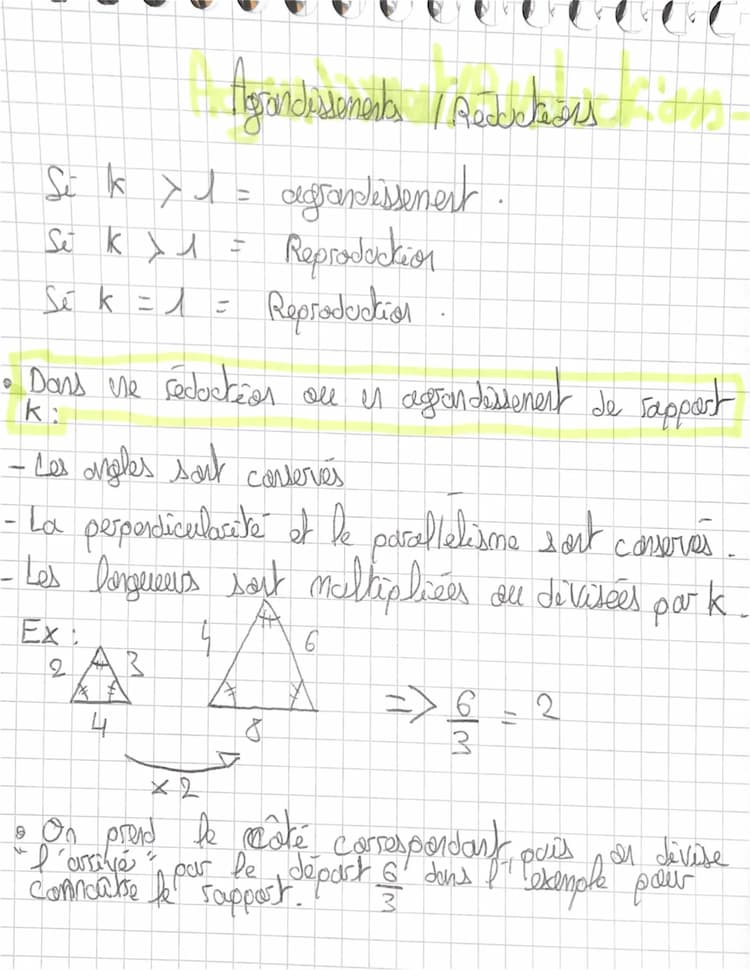 Agrandissements / Réductions
Si k > 1 = agrandissement.
Si k > 1 = Reproduction
Si k = 1 = Reproduction.
• Dans une réduction ou un agrandissement de rapport
k :
- Les angles sont conservés
- La perpendicularité et le parallélisme sont conservés.
- Les longueurs sont multipliées ou divisées par k.
Ex :
2 3 4
4 6 8
=> 6/3 = 2
x 2
• On prend le côté correspondant puis on divise
"l'arrivé" par le départ 6/3 dans l'exemple pour
connaître le rapport.